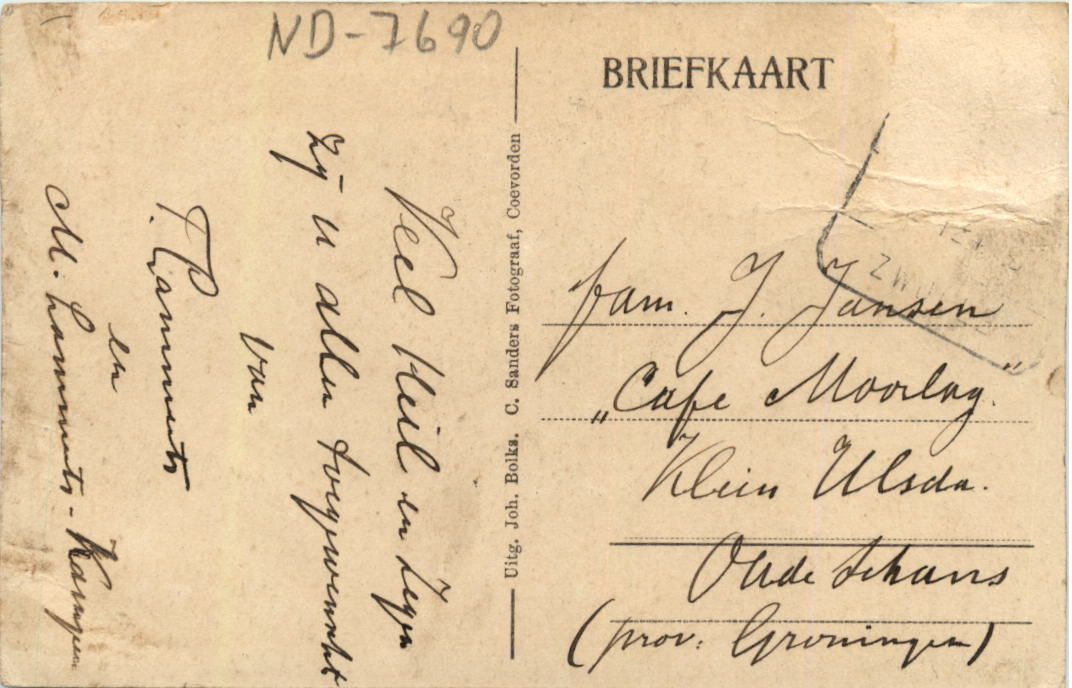 ND-7690
BRIEFKAART
Veel Heil en Zegen
zij u allen toegewenscht
van
F. Lammerts
en
M. Lammerts-Kampen
Uitg. Joh. Bolks. C. Sanders Fotograaf, Coevorden
fam. J. Jansen
„Cafe Moorlag."
Klein Ulsda.
Oude Schans
(prov. Groningen)